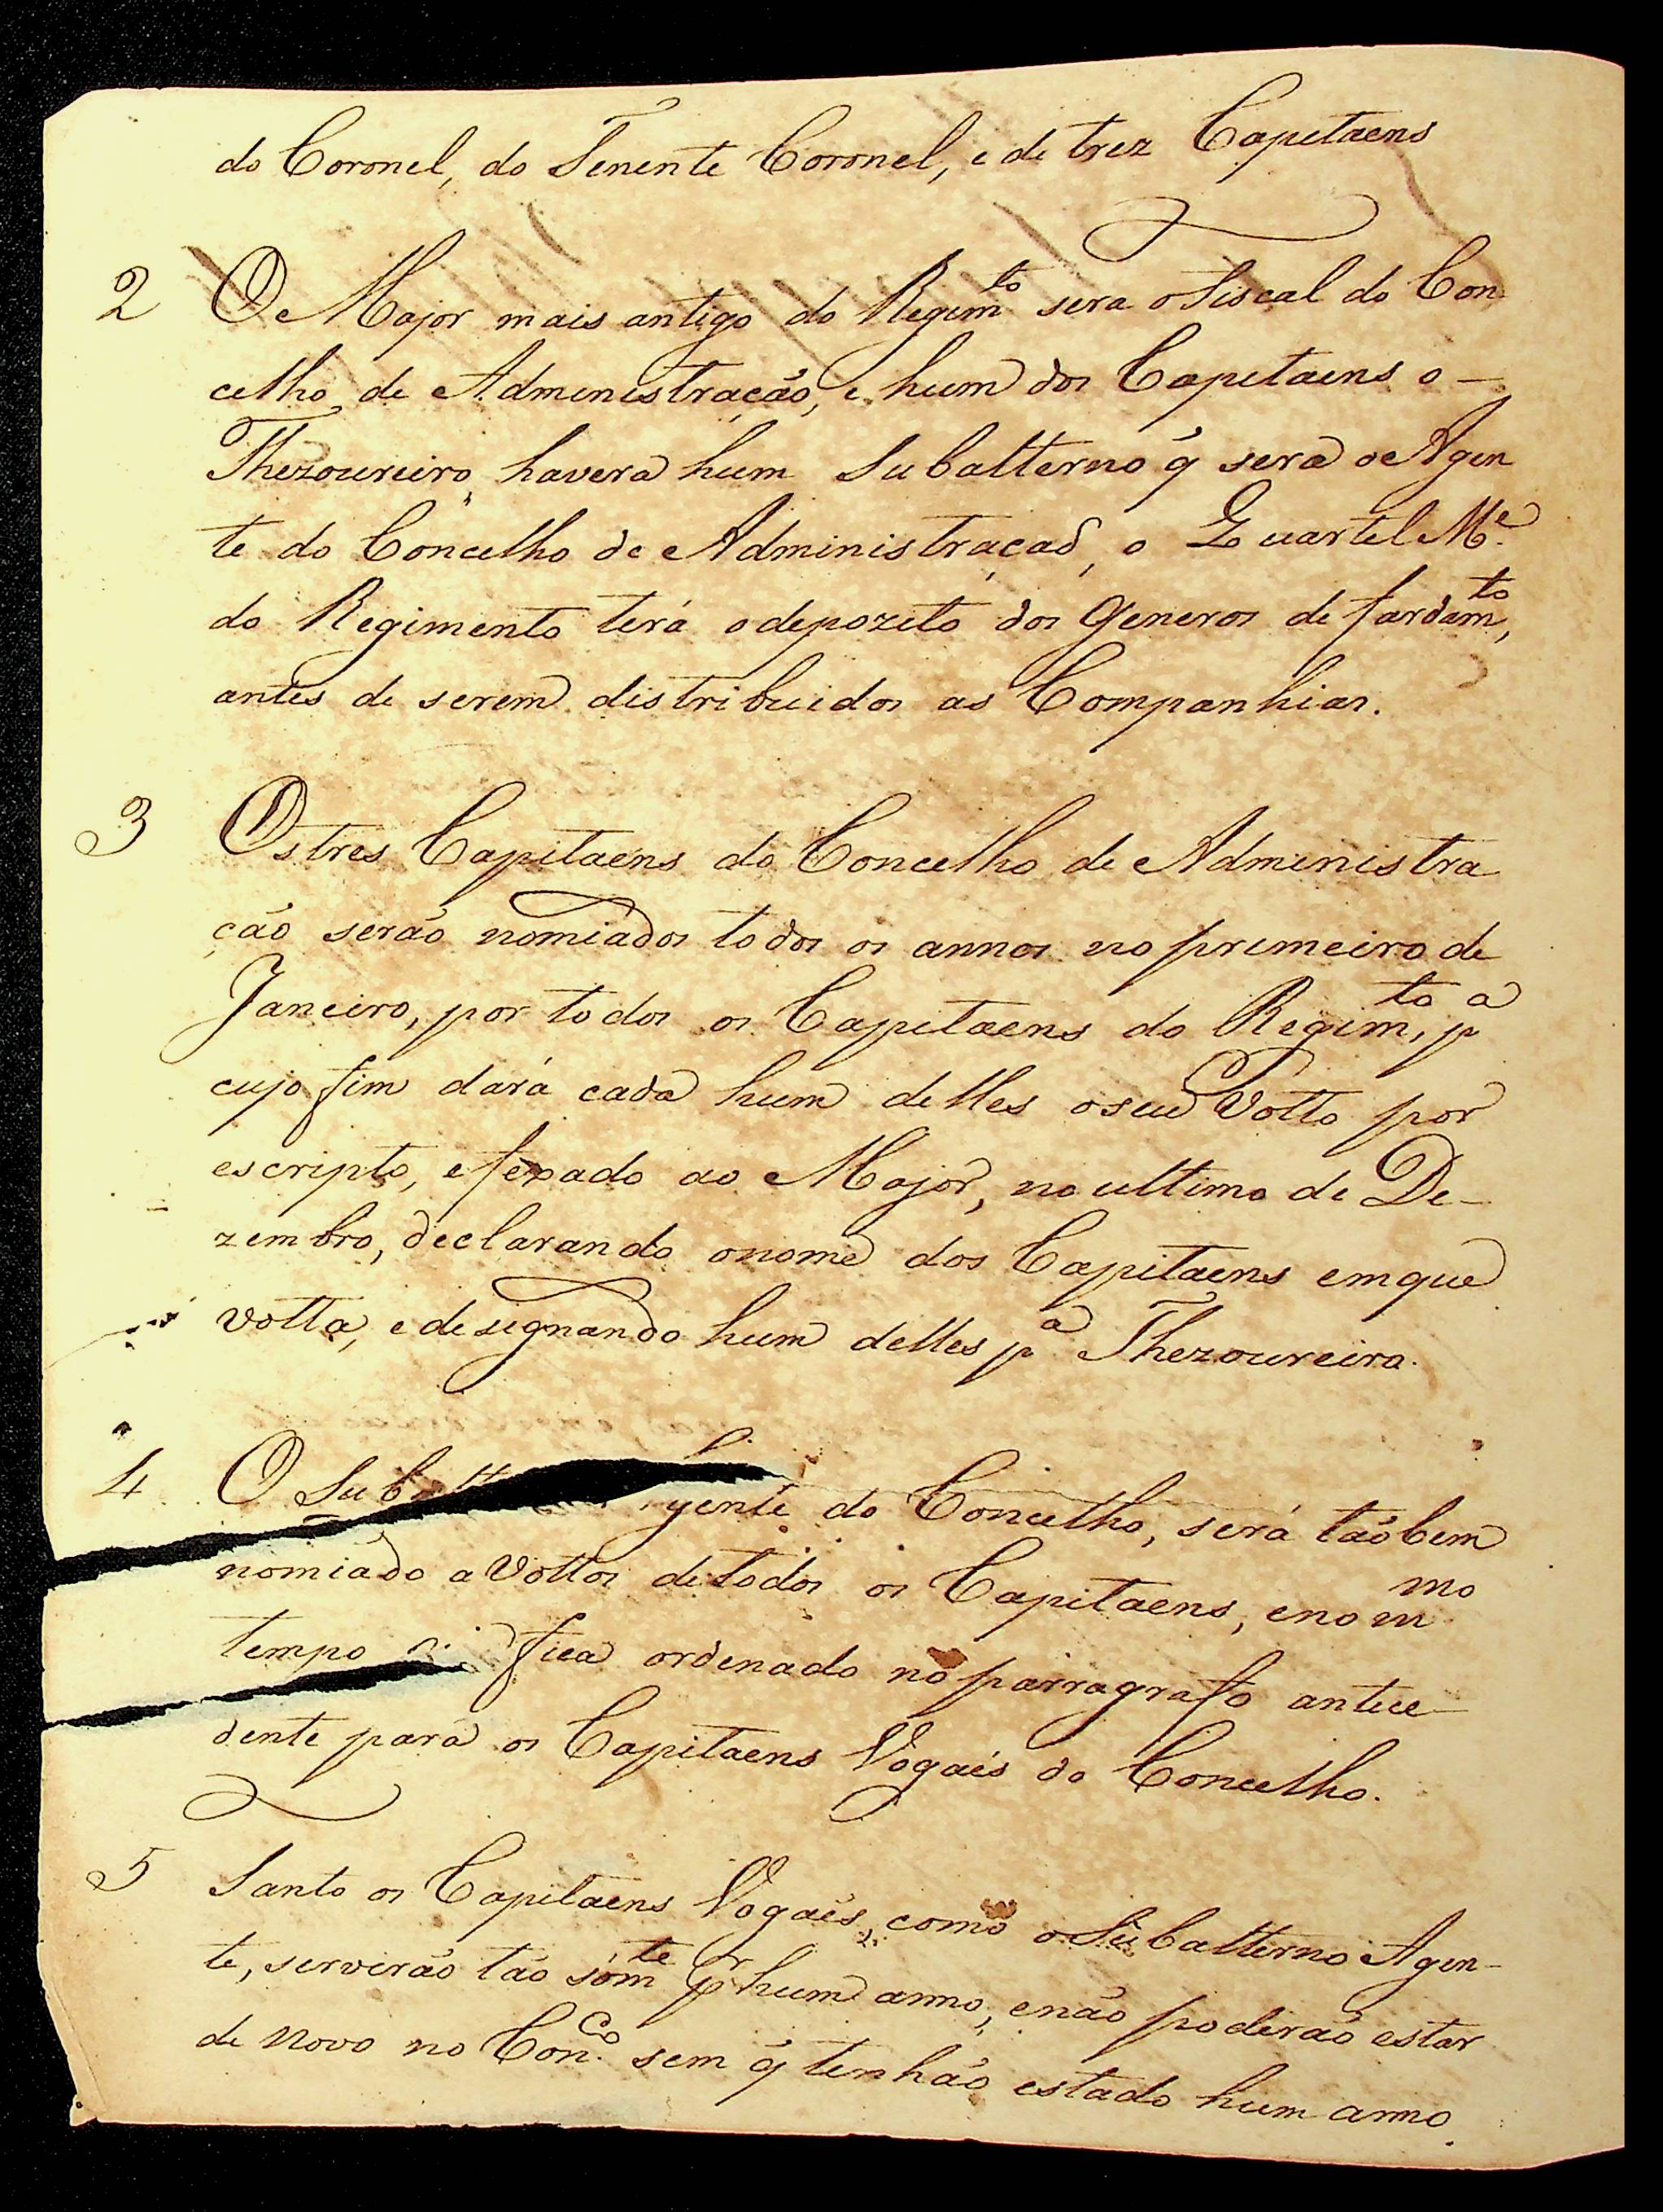 do Coronel, do Tenente Coronel, e de trez Capitaens
2 O Major mais antigo do Regim.to sera o Fiscal do Con
celho de Administração, e hum dos Capitaens o —
Thezoureiro, havera hum Subalterno q̃ sera o Agen
te do Concelho de Administraçaõ, o Quartel M.e
do Regimento terá o depozito dos Generos de fardam.to,
antes de serem distribuidos as Companhias.
3 Os tres Capitaens do Concelho de Administra
ção serão nomiados todos os annos no primeiro de
Janeiro, por todos os Capitaens do Regim.to, p.a
cujo fim dará cada hum delles o seu Votto por
escripto, e fexado ao Major, no ultimo de De-
zembro, declarando o nome dos Capitaens em que
votta, e designando hum delles p.a Thezoureiro.
4 O Subalt gente do Concelho, será tãobem
nomiado a Vottos de todos os Capitaens, e no m.mo
tempo fica ordenado no parragrafo antece-
dente para os Capitaens Vogaés do Concelho.
5 Tanto os Capitaens Vogaés, como o Subalterno Agen-
te, servirão tão sóm.te p.r hum anno, e não poderão estar
de novo no Con.co sem q̃ tenhão estado hum anno